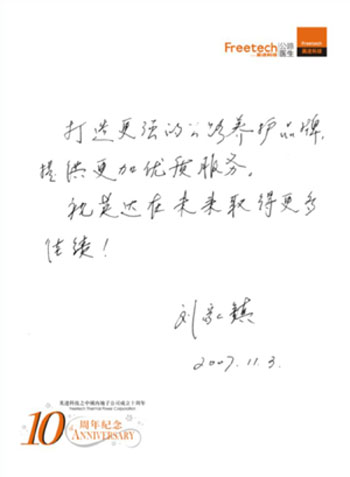 Freetech 公路
英达科技 医生
Freetech
英达科技
打造更强的公路养护品牌，
提供更加优质服务。
祝英达在未来取得更多
佳绩！
刘 镇
2007.11.3.
英达科技之中国内地子公司成立十周年
Freetech Thermal Power Corporation
10 周年纪念
ANNIVERSARY